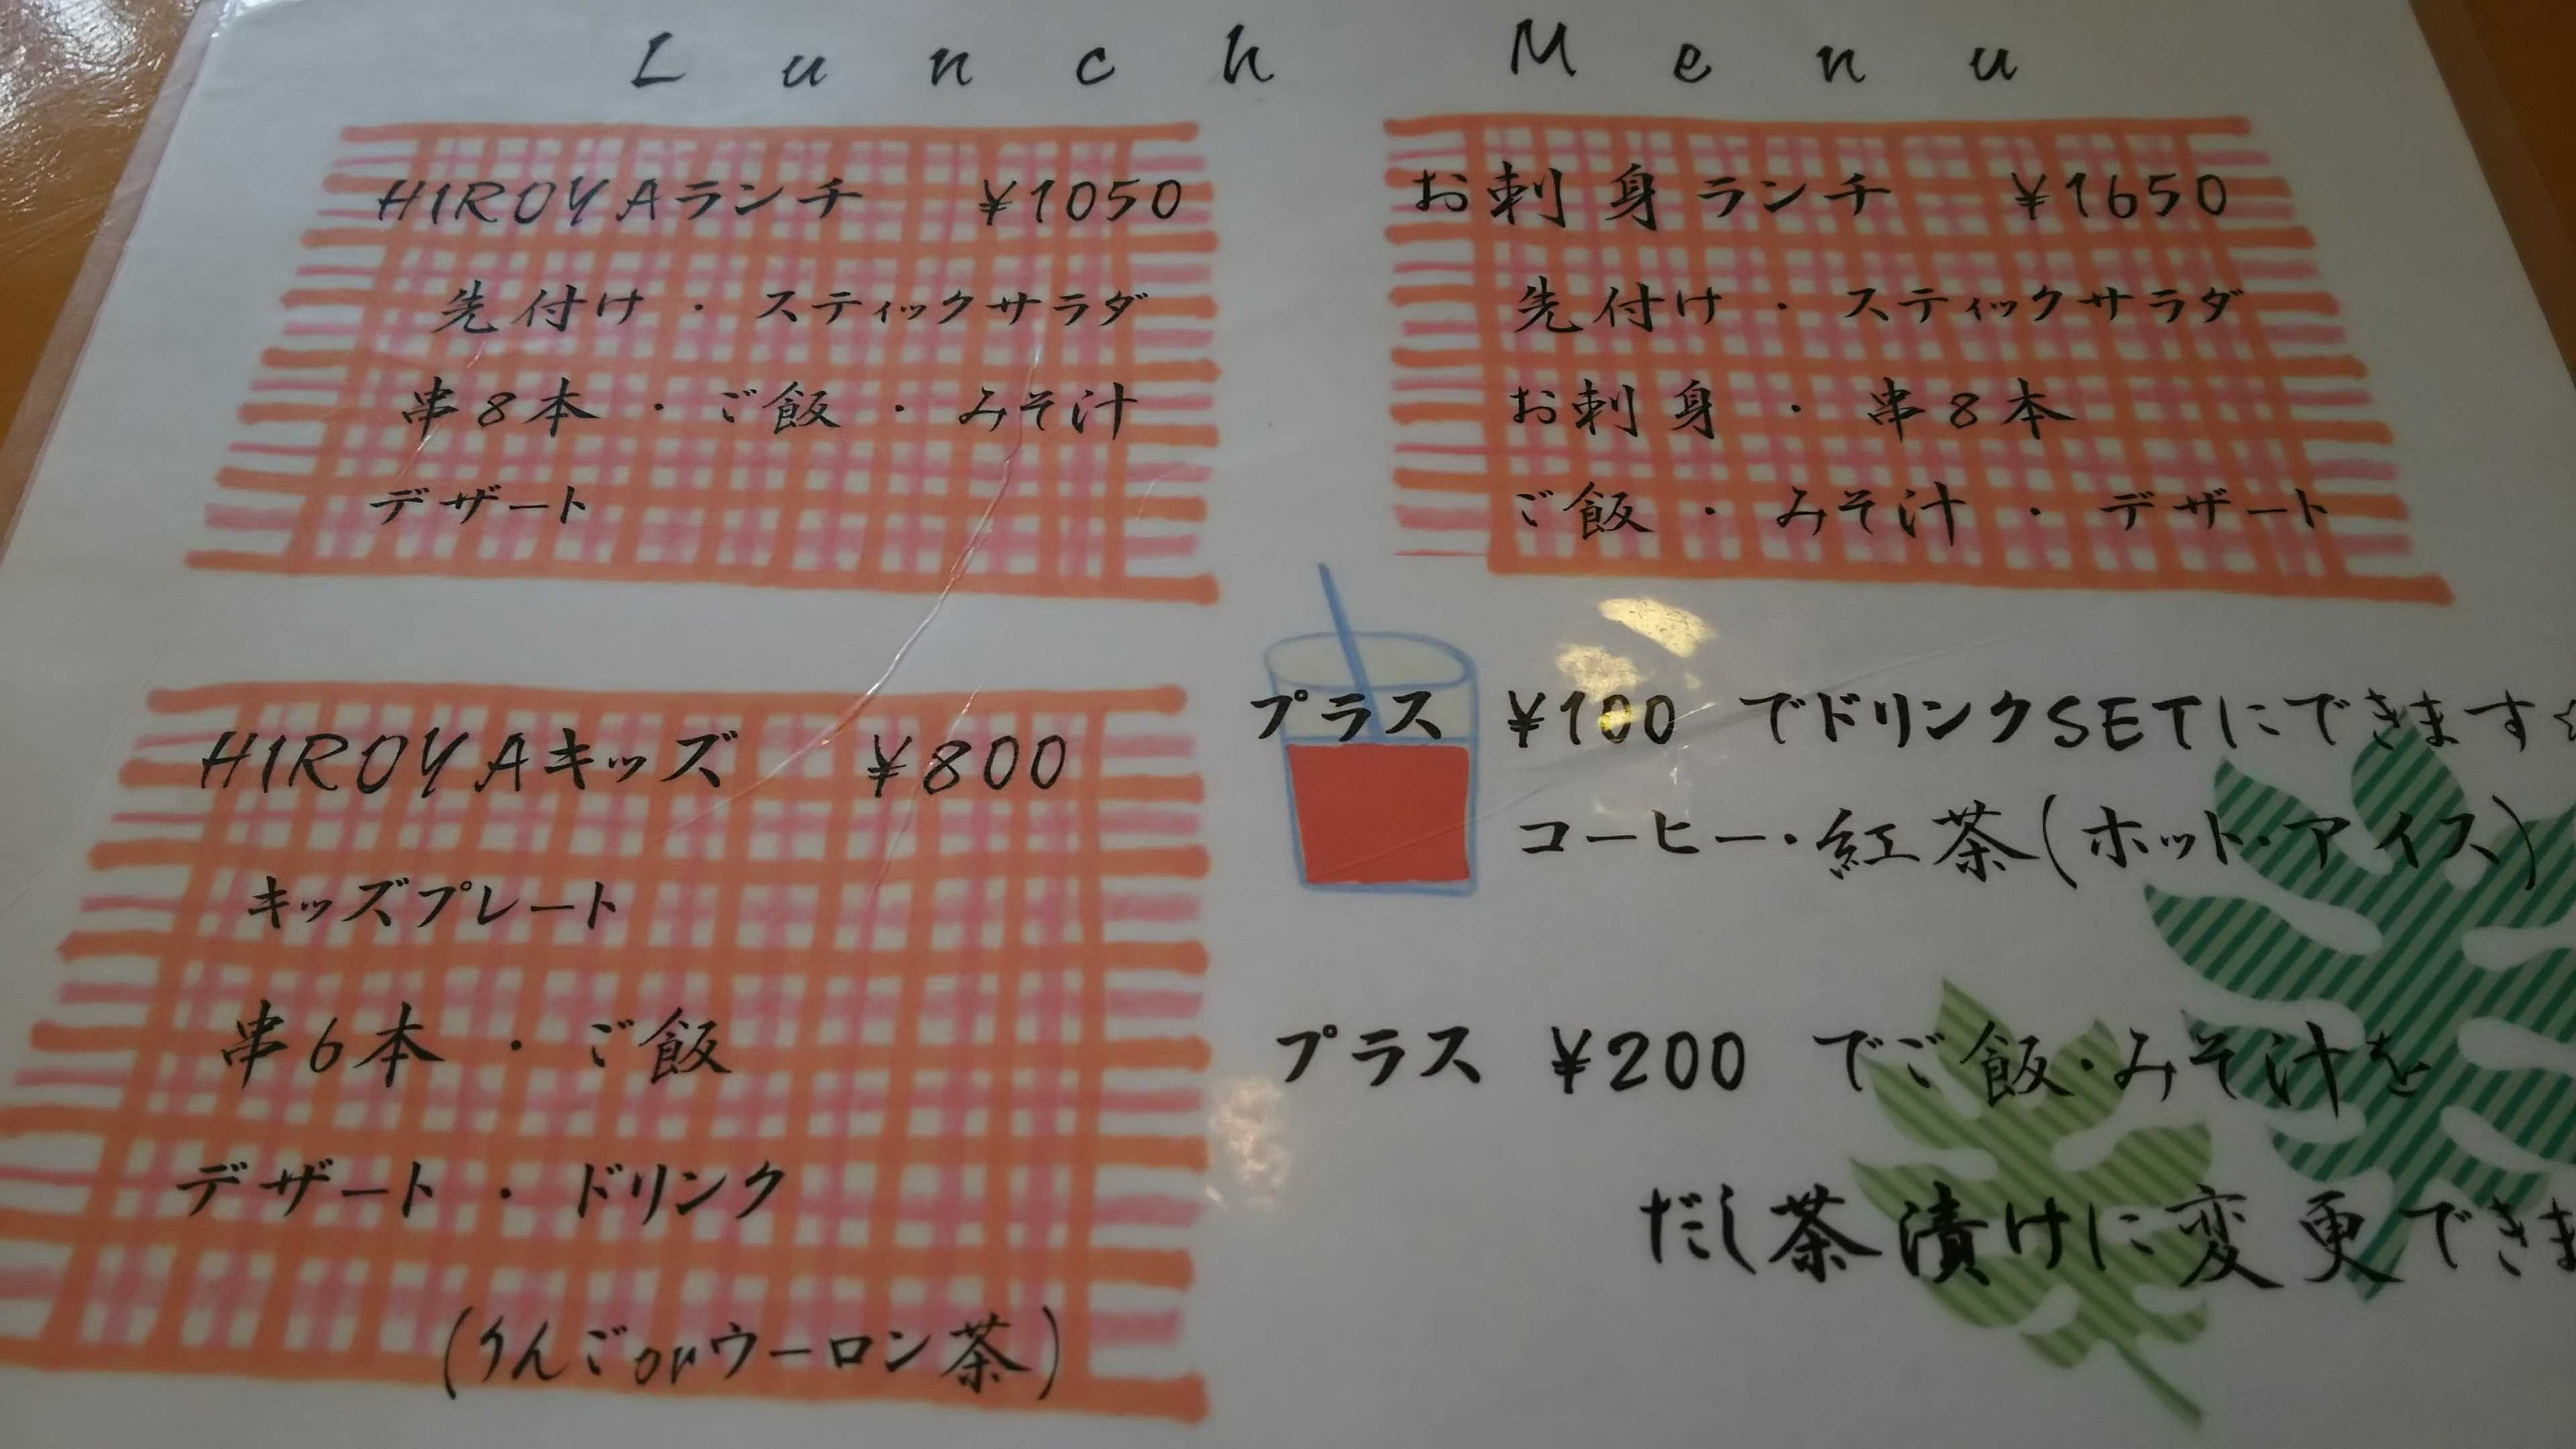 Lunch Menu
HIROYAランチ ¥1050
先付け・スティックサラダ
串8本・ご飯・みそ汁
デザート
お刺身ランチ ¥1650
先付け・スティックサラダ
お刺身・串8本
ご飯・みそ汁・デザート
HIROYAキッズ ¥800
キッズプレート
串6本・ご飯
デザート・ドリンク
(りんごorウーロン茶)
プラス ¥100 でドリンクSETにできます☆
コーヒー・紅茶(ホット・アイス)
プラス ¥200 でご飯・みそ汁を
だし茶漬けに変更できま